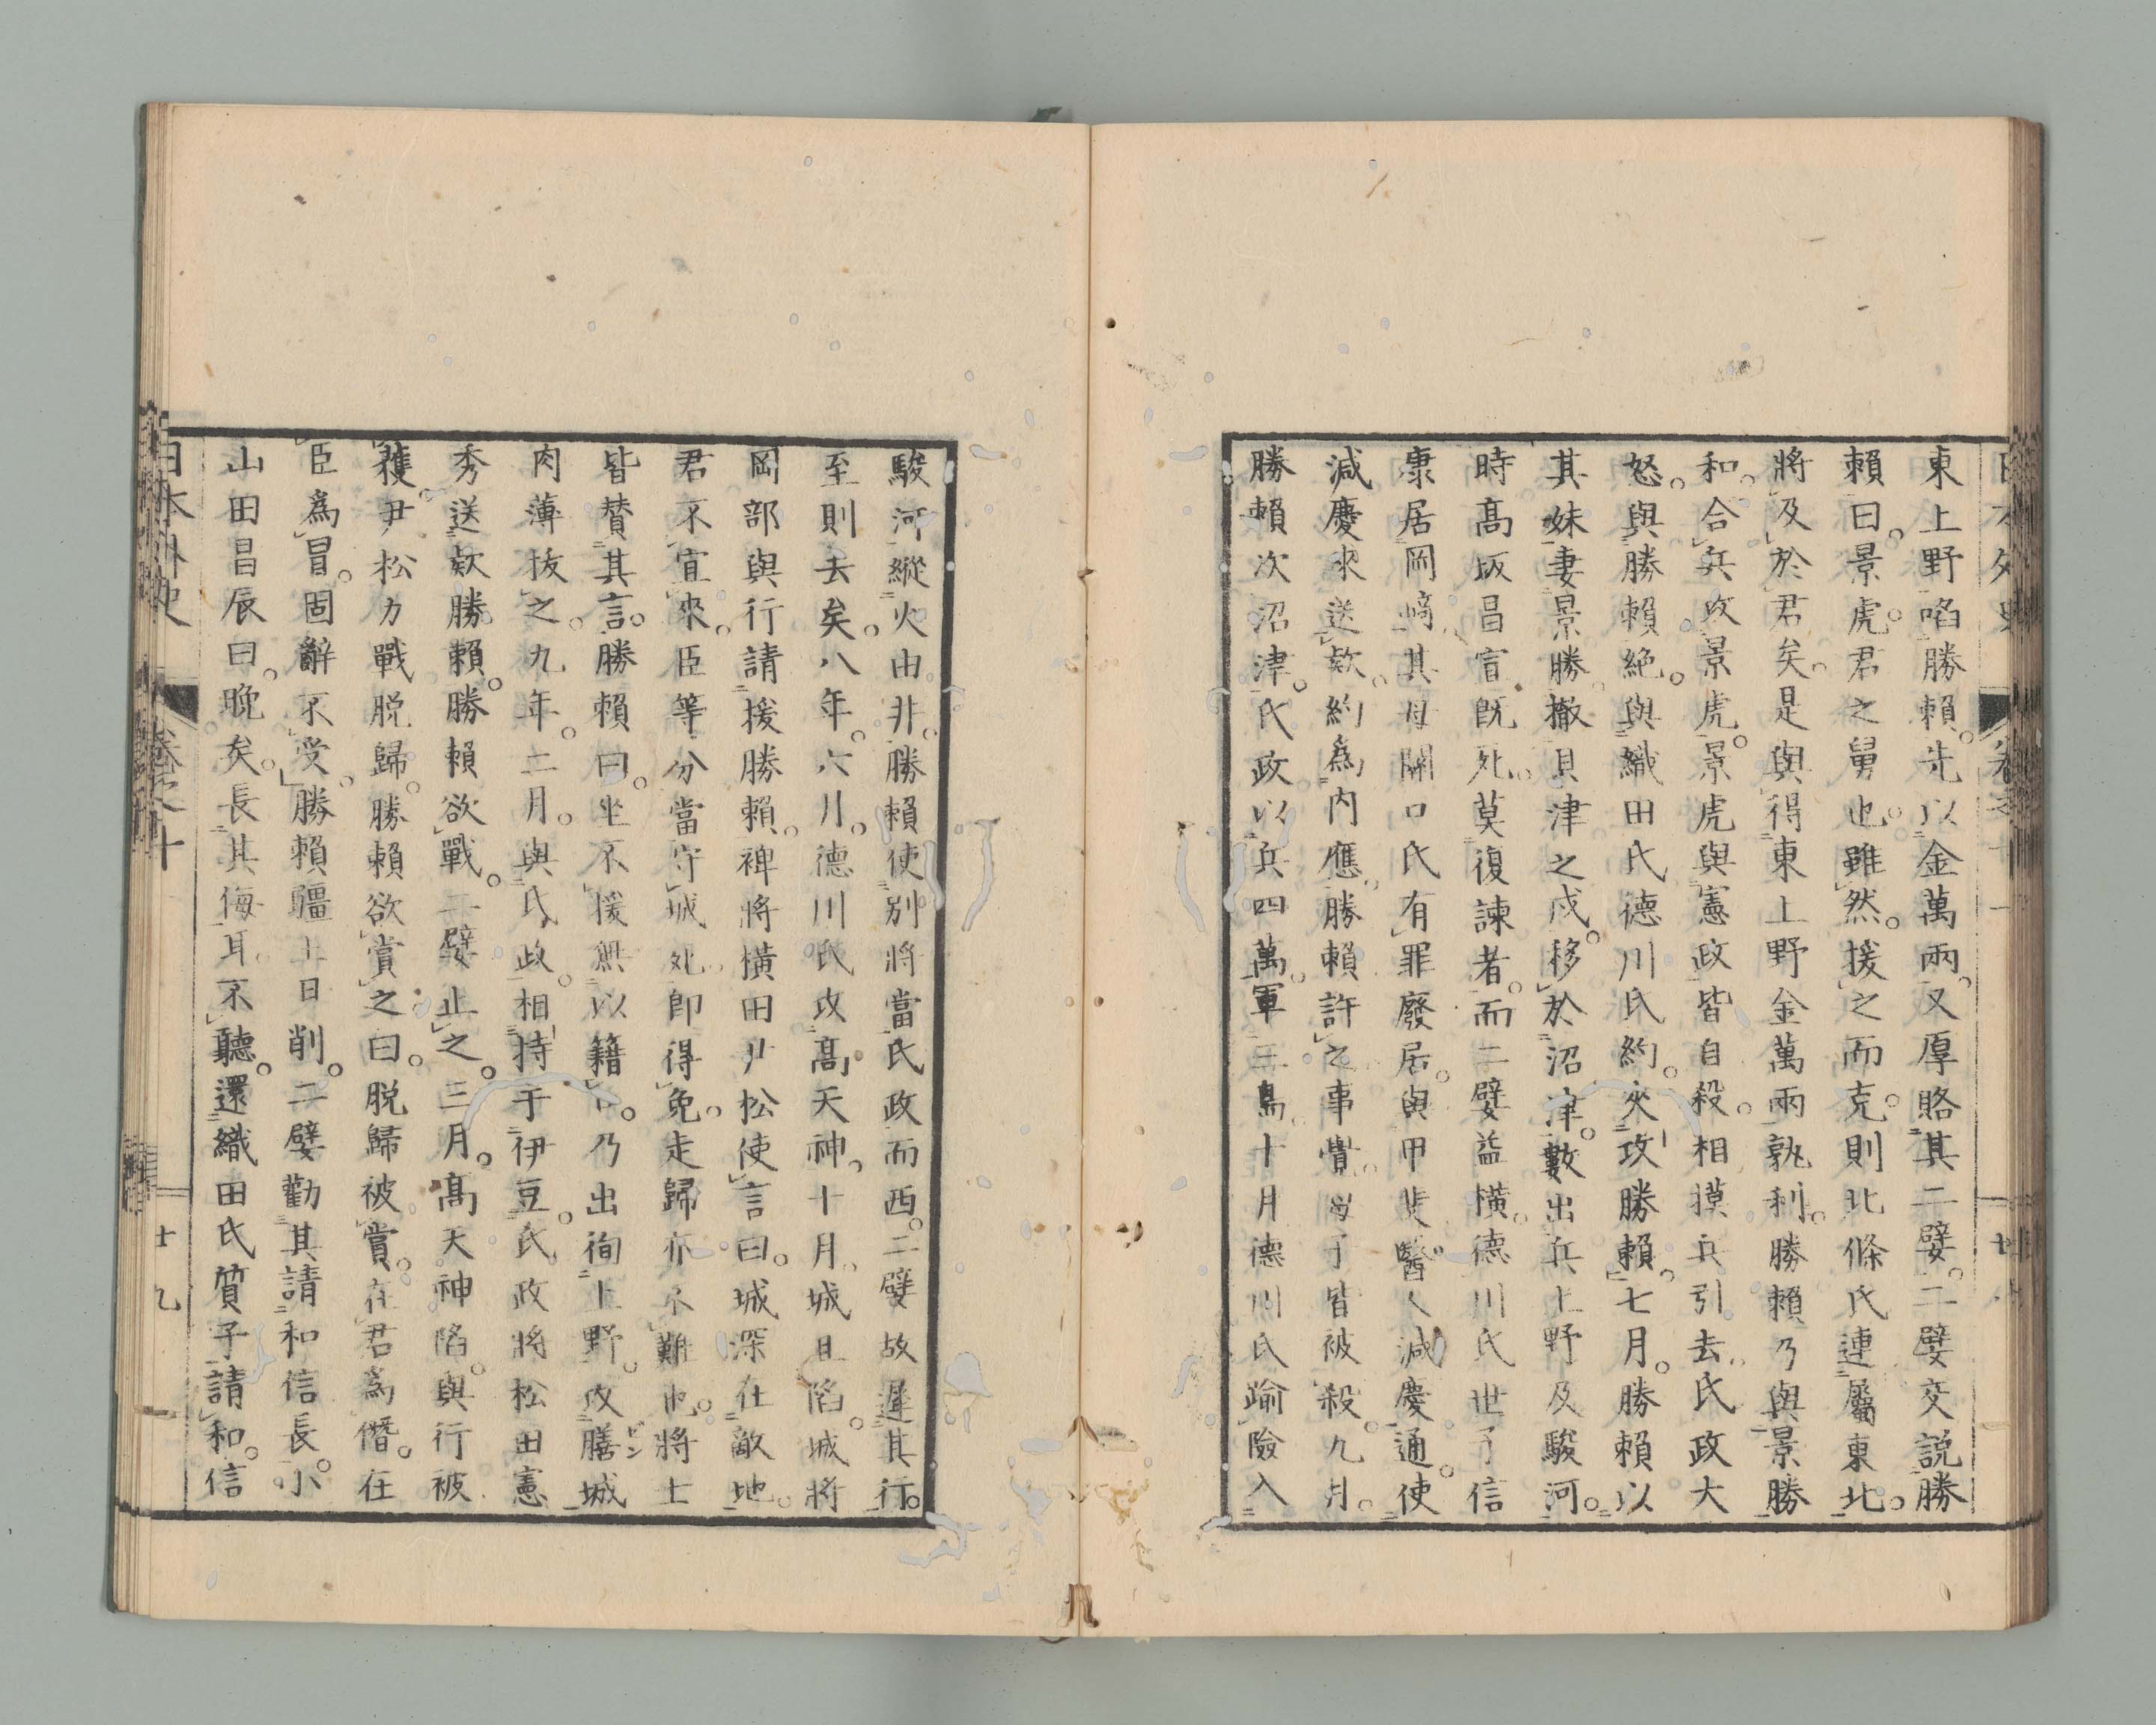 日本外史 卷之十
東上野。啗勝賴。先以金萬兩。又厚賂其二嬖。二嬖交說勝
賴曰。景虎。君之舅也。雖然。援之而克。則北條氏連屬東北。
將及於君矣。是與得東上野金萬兩孰利。勝賴乃與景勝
和。合兵攻景虎。景虎與憲政皆自殺。相摸兵引去。氏政大
怒。與勝賴絕。與織田氏德川氏約。夾攻勝賴。七月。勝賴以
其妹妻景勝。撤貝津之戍。移於沼津。數出兵上野及駿河。
時高坂昌宣既死。莫復諫者。而二嬖益橫。德川氏世子信
康居岡崎。其母關口氏有罪廢居。與甲斐醫人減慶通。使
減慶來送款。約爲內應。勝賴許之。事覺。母子皆被殺。九月。
勝賴次沼津。氏政以兵四萬。軍三島。十月德川氏踰險入
駿河。縱火由井。勝賴使別將當氏政而西。二嬖故遲其行。
至則去矣。八年。六月。德川氏攻高天神。十月。城且陷。城將
岡部與行請援勝賴。裨將橫田尹松使言曰。城深在敵地。
君不宜來。臣等分當守城死。卽得免走歸亦不難也。將士
皆贊其言。勝賴曰。坐不援無以籍口。乃出徇上野。攻膳城
肉薄拔之。九年。二月。與氏政相持于伊豆。氏政將松田憲
秀送款勝賴。勝賴欲戰。二嬖止之。三月。高天神陷。與行被
獲。尹松力戰脱歸。勝賴欲賞之。曰。脱歸被賞。在君爲僭。在
臣爲冒。固辭不受。勝賴疆土日削。二嬖勸其請和信長。小
山田昌辰曰。晚矣。長其侮耳。不聽。還織田氏質子請和。信
日本外史 卷之十 十九